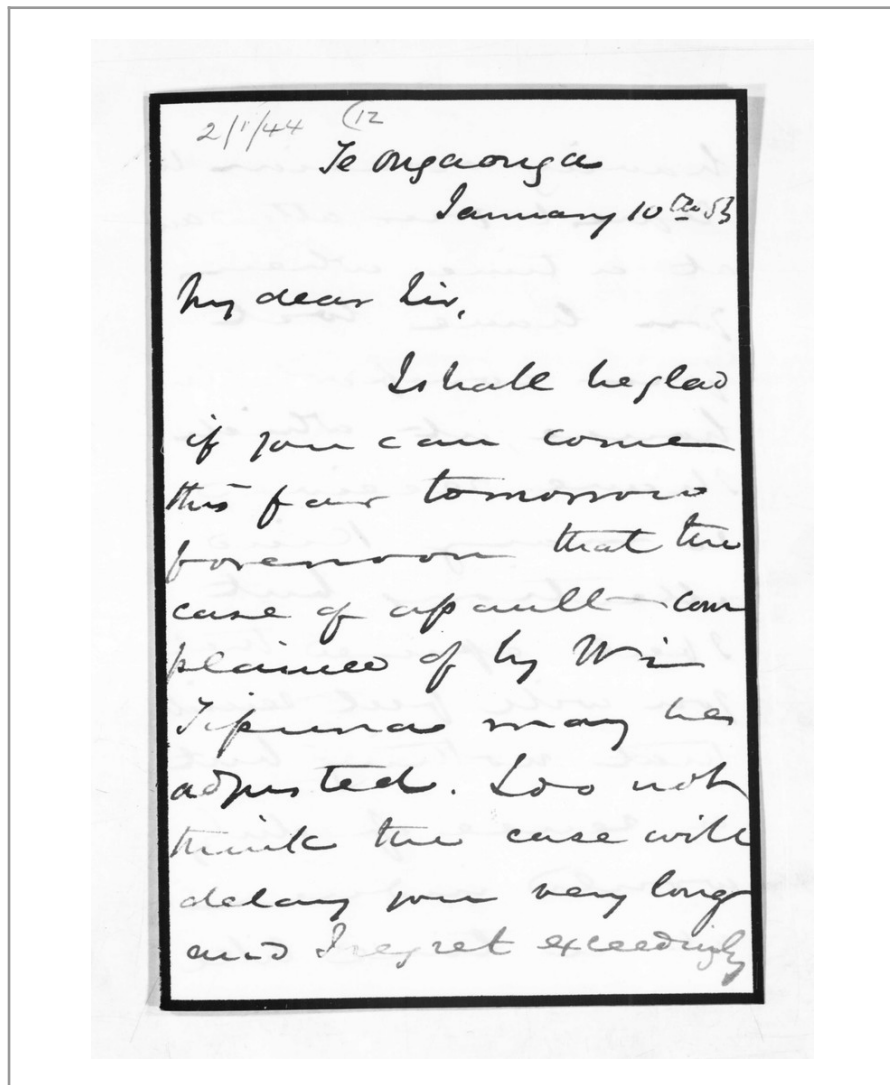 2/1/44 (12
Te Ongaonga
January 10th 53
My dear Sir,
I shall be glad
if you can come
this far tomorrow
forenoon that the
case of assault com
plained of by Wi
Tipuna may be
adjusted. I do not
think the case will
delay you very long
and I regret exceedingly